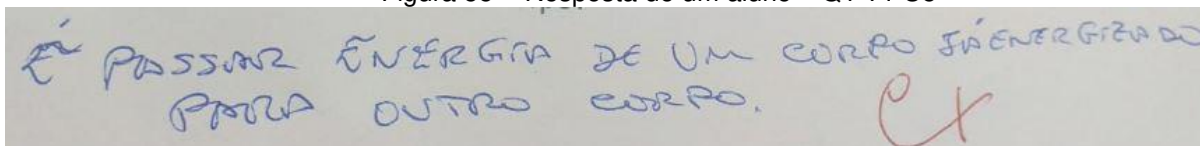 É PASSAR ENERGIA DE UM CORPO JÁ ENERGIZADO
PARA OUTRO CORPO.